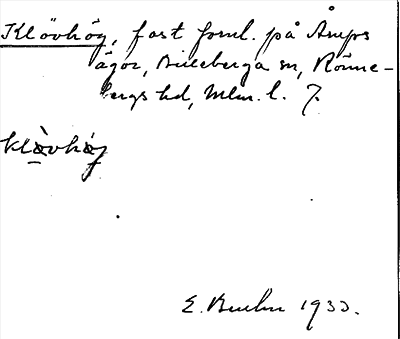 Klövhög, fast forml. på Åmps
ägor, Billeberga sn, Rönne-
bergs hd, Mlm. l. 7.
klövhög
E. Buhn 1933.